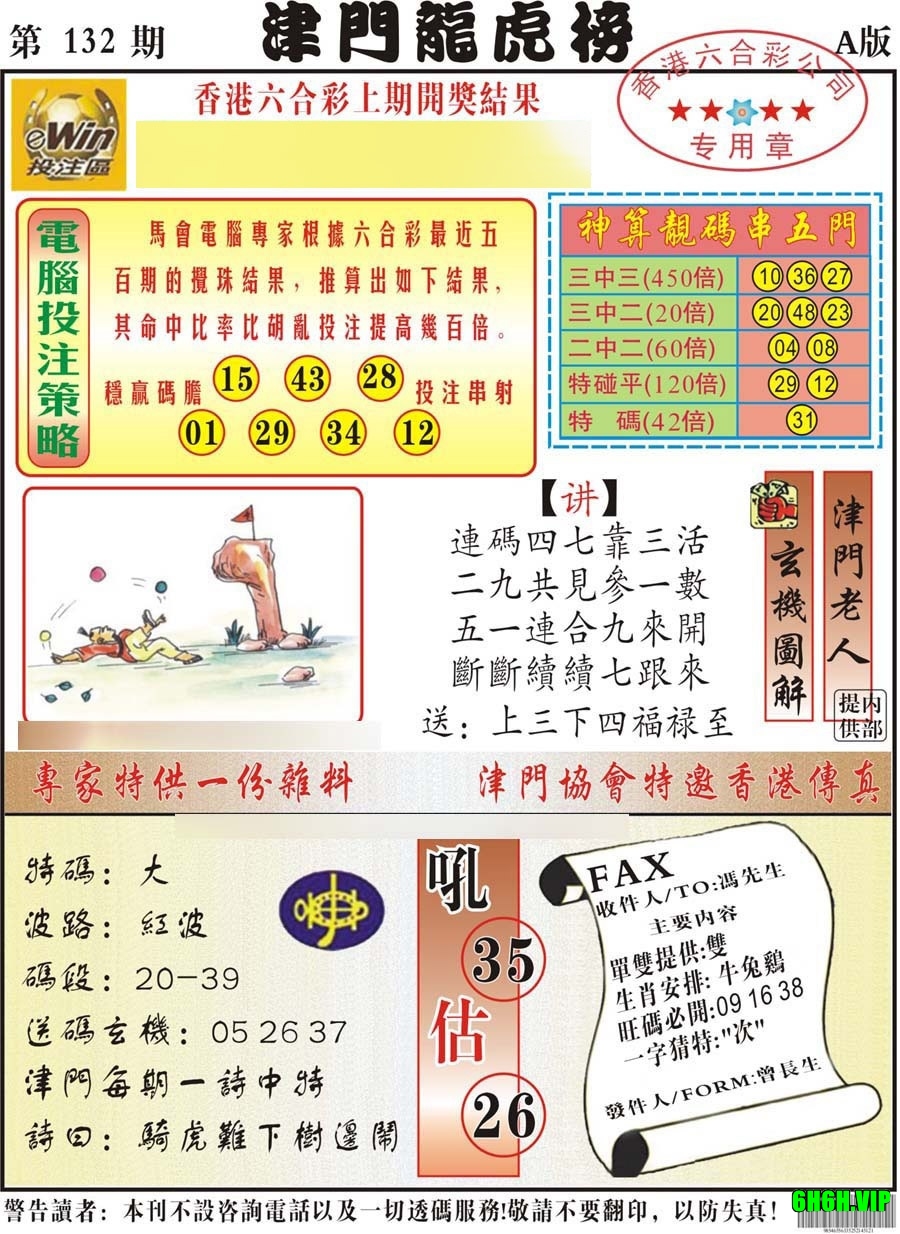 第 132 期
津門龍虎榜
A版
香港六合彩公司
专用章
eWin
投注區
香港六合彩上期開獎結果
電腦投注策略
馬會電腦專家根據六合彩最近五
百期的攪珠結果，推算出如下結果，
其命中比率比胡亂投注提高幾百倍。
穩贏碼膽 15 43 28 投注串射
01 29 34 12
神算靚碼串五門
三中三(450倍) 10 36 27
三中二(20倍) 20 48 23
二中二(60倍) 04 08
特碰平(120倍) 29 12
特 碼(42倍) 31
【讲】
連碼四七靠三活
二九共見參一數
五一連合九來開
斷斷續續七跟來
送：上三下四福禄至
玄機圖解
津門老人
內部提供
專家特供一份雜料
津門協會特邀香港傳真
特碼：大
波路：紅波
碼段：20-39
送碼玄機：05 26 37
津門每期一詩中特
詩曰：騎虎難下樹邊鬧
吼
35
估
26
FAX
收件人/TO:馮先生
主要內容
單雙提供:雙
生肖安排:牛兔鷄
旺碼必開:09 16 38
一字猜特:"次"
發件人/FORM:曾長生
警告讀者：本刊不設咨詢電話以及一切透碼服務!敬請不要翻印，以防失真!
6H6H.VIP